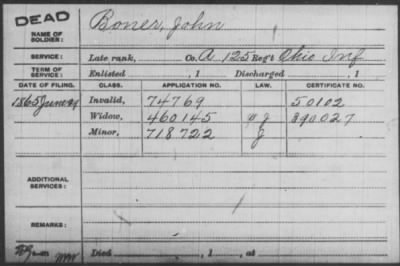 DEAD
NAME OF SOLDIER: Boner, John
SERVICE: Late rank, Co. A 125 Reg't Ohio Inf
TERM OF SERVICE: Enlisted , 1 Discharged , 1
DATE OF FILING. CLASS. APPLICATION NO. LAW. CERTIFICATE NO.
1865 June Invalid, 74769 50102
Widow, 460145 390027
Minor, 718722
ADDITIONAL SERVICES:
REMARKS:
Died , 1 , at